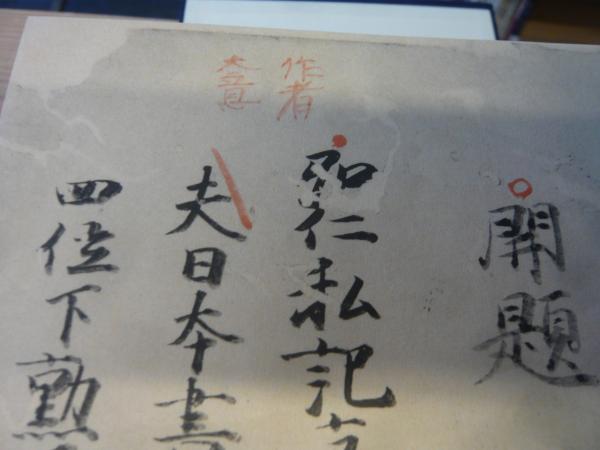 開題
作者
弘仁私記
大意
夫日本書
四位下勲